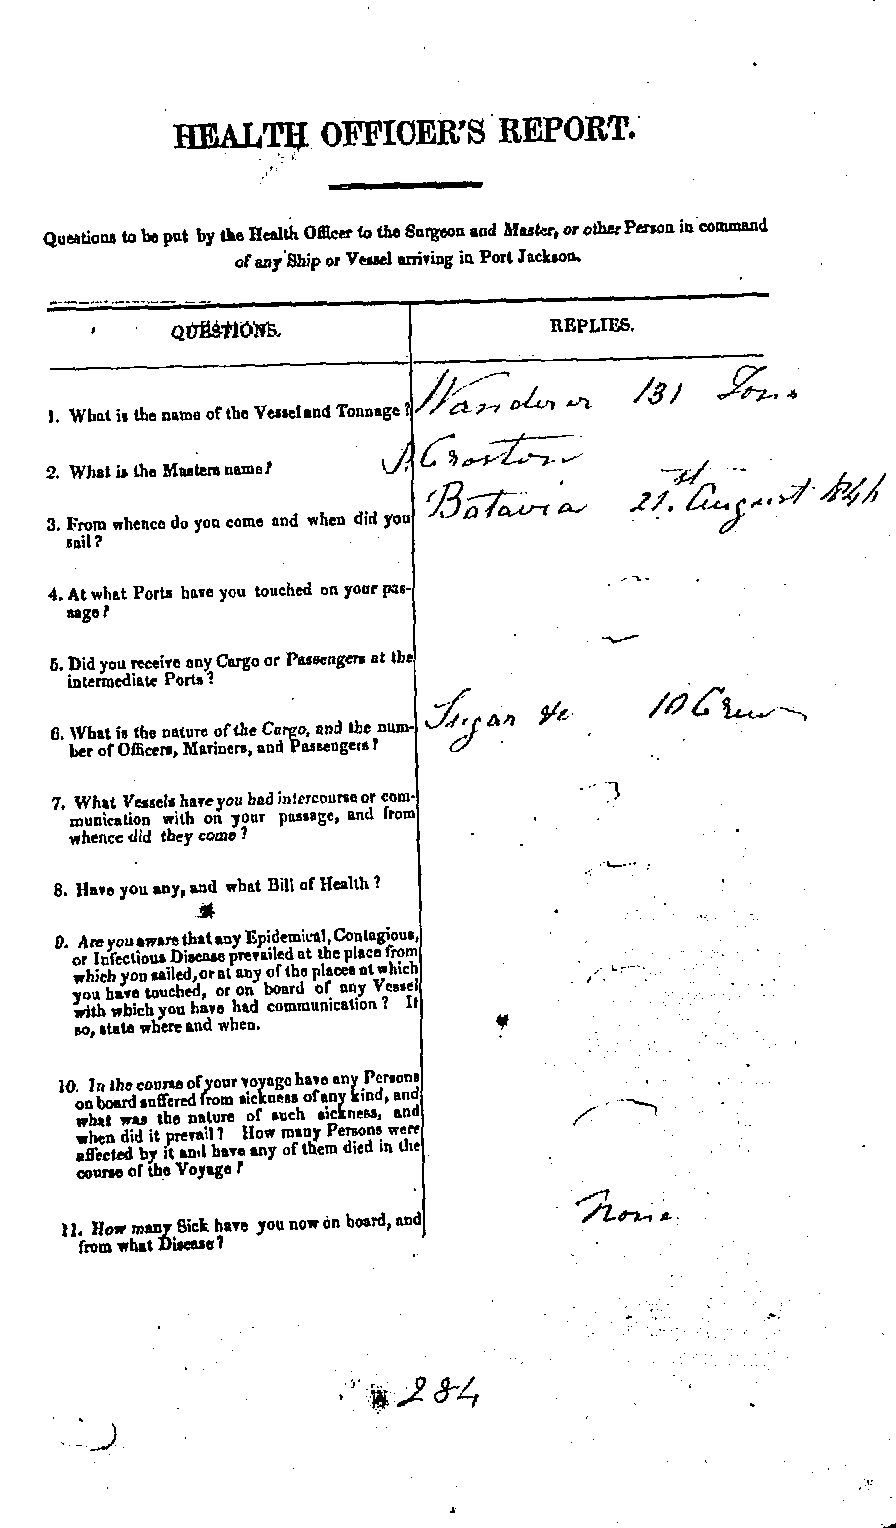 HEALTH OFFICER'S REPORT.
Questions to be put by the Health Officer to the Surgeon and Master, or other Person in command
of any Ship or Vessel arriving in Port Jackson.
QUESTIONS.
REPLIES.
1. What is the name of the Vessel and Tonnage?
Wanderer 131 Tons
2. What is the Masters name?
Croston
3. From whence do you come and when did you
sail?
Batavia 21st August
4. At what Ports have you touched on your pas-
sage?
5. Did you receive any Cargo or Passengers at the
intermediate Ports?
6. What is the nature of the Cargo, and the num-
ber of Officers, Mariners, and Passengers?
Sugar &c 10 Crew
7. What Vessels have you had intercourse or com-
munication with on your passage, and from
whence did they come?
8. Have you any, and what Bill of Health?
9. Are you aware that any Epidemical, Contagious,
or Infectious Disease prevailed at the place from
which you sailed, or at any of the places at which
you have touched, or on board of any Vessel
with which you have had communication? If
so, state where and when.
10. In the course of your voyage have any Persons
on board suffered from sickness of any kind, and
what was the nature of such sickness, and
when did it prevail? How many Persons were
affected by it and have any of them died in the
course of the Voyage?
11. How many Sick have you now on board, and
from what Disease?
None
284